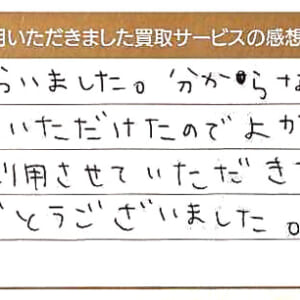 用いただきました買取サービスの感想
らいました。分からな
いただけたのでよか
利用させていただき
とうございました。